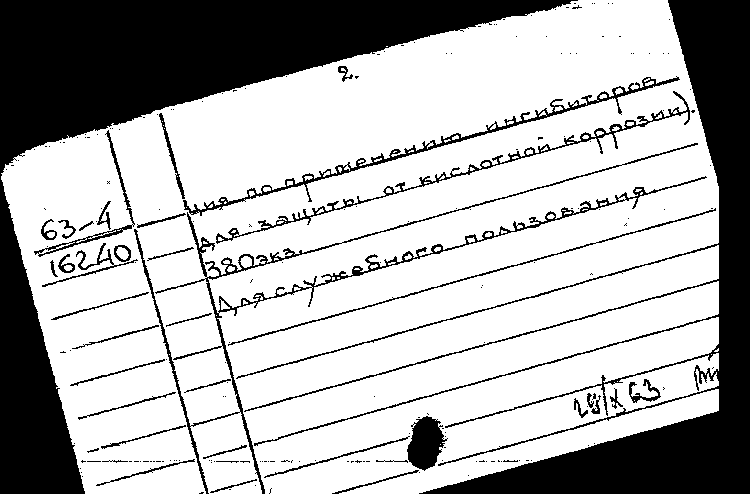 2.
ция по применению ингибиторов
для защиты от кислотной коррозии).
63-4
16240
380экз.
Для служебного пользования.
28/X 63